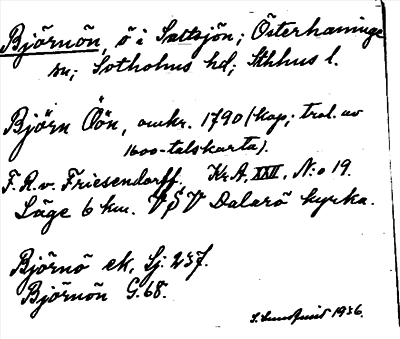 Björnön, ö i Saltsjön; Österhaninge
sn; Sotholms hd; Sthlms l.
Björn Öön, omkr. 1790 (kop; trol. av
1600-talskarta).
F.R.v. Friesendorff. Kr.A, XXII, N:o 19.
Läge 6 km. VSV Dalarö kyrka.
Björnö ek, Sj. 237.
Björnön G. 68.
S. Lundquist 1936.